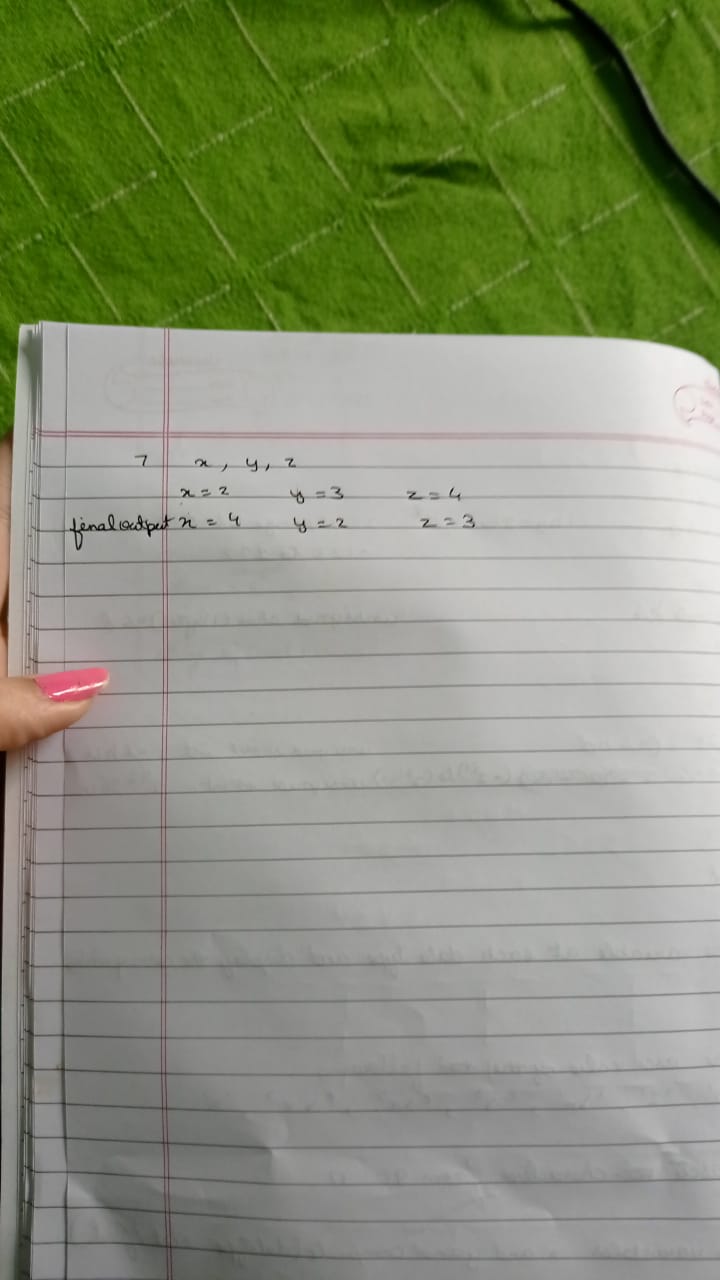 7 x, y, z
x = 2 y = 3 z = 4
final output x = 4 y = 2 z = 3